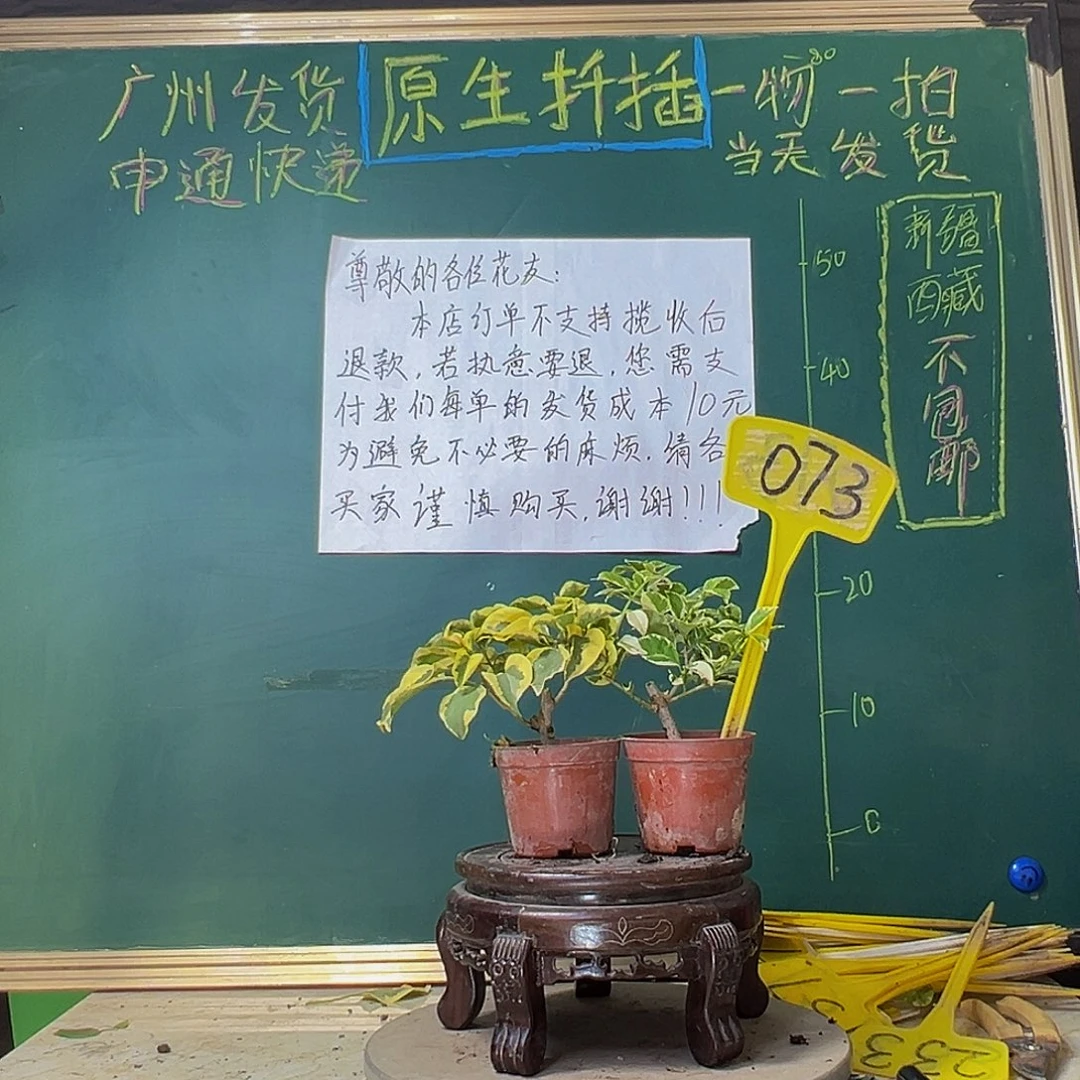 广州发货
申通快递
原生扦插
一物一拍
当天发货
新疆
西藏
不
包
邮
尊敬的各位花友:
本店订单不支持揽收后
退款,若执意要退,您需支
付我们每单的发货成本10元
为避免不必要的麻烦,请各
买家谨慎购买,谢谢!!!
50
40
20
10
0
073
233